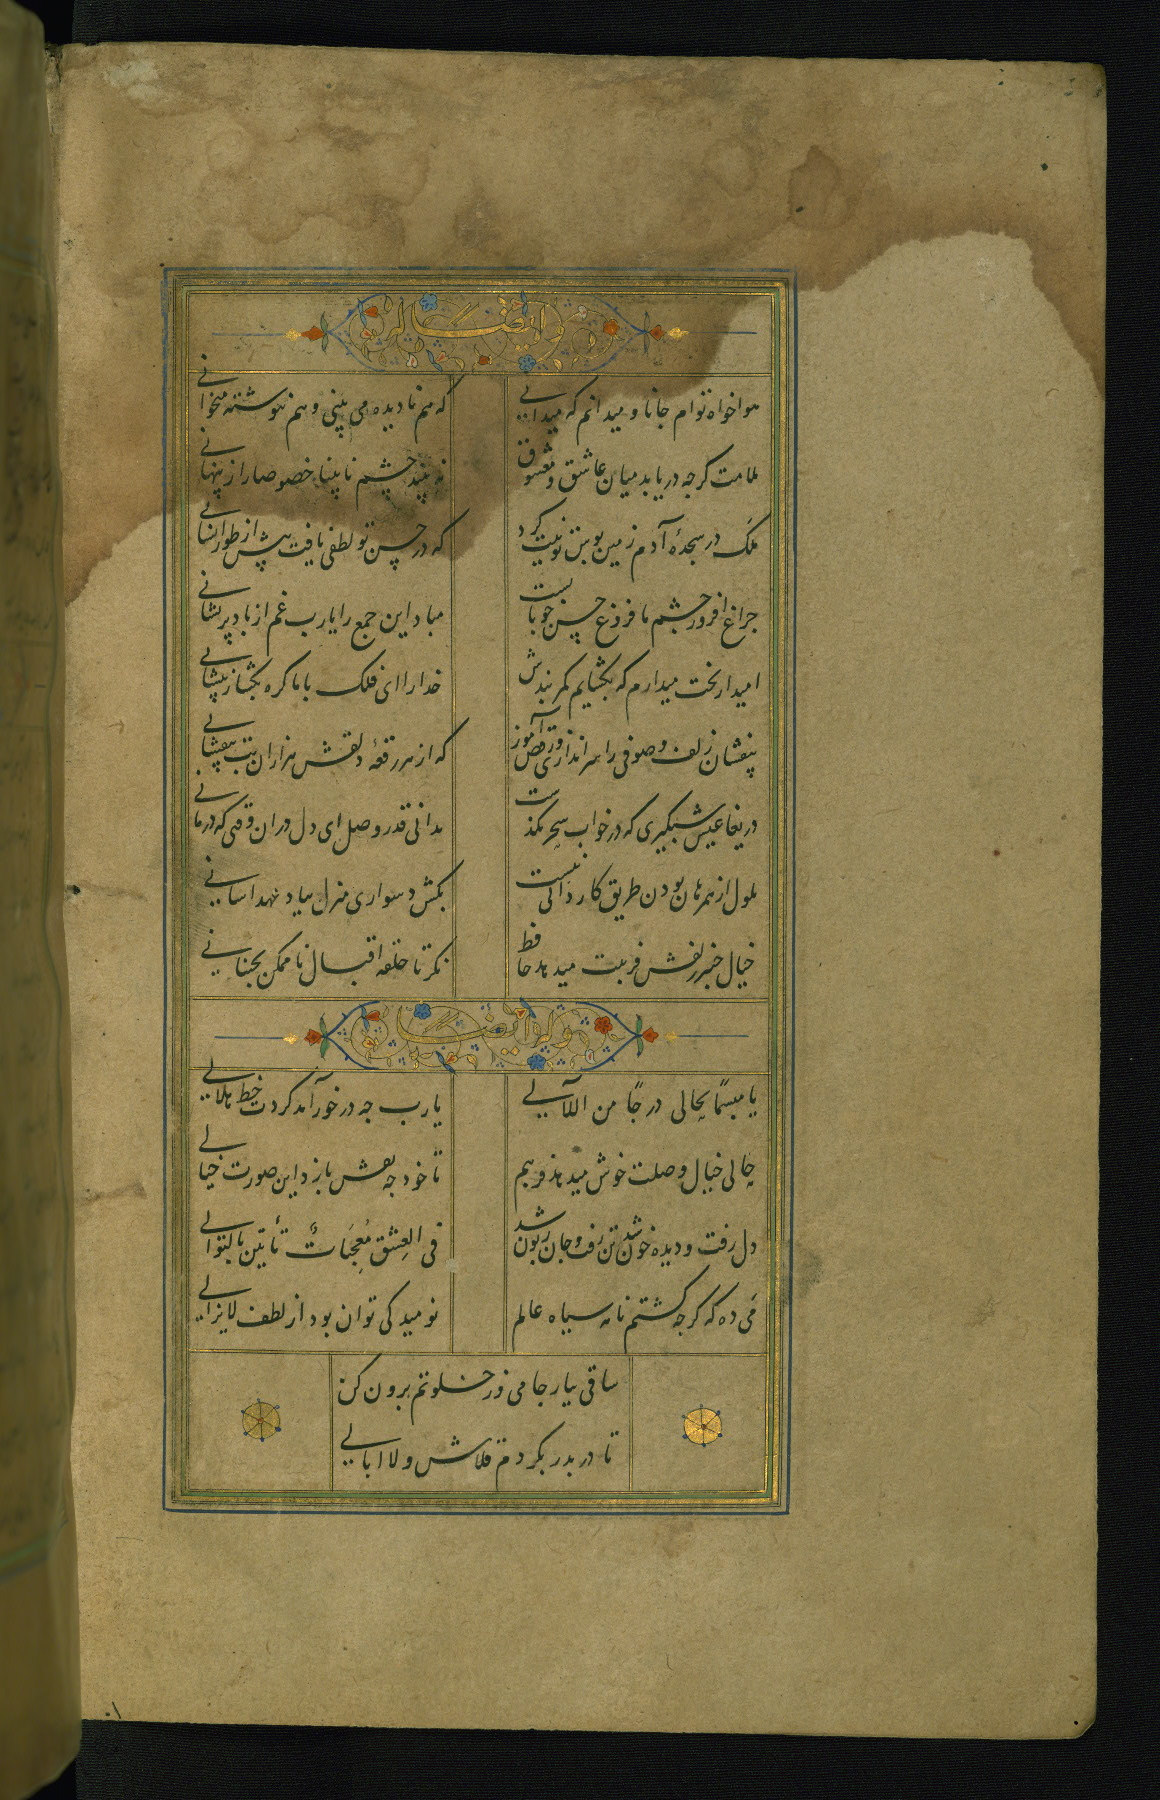 وله ایضاً
هواخواه توام جانا و میدانم که میدانی
که هم نادیده می بینی و هم ننوشته میخوانی
ملامت کر چه دریابد میان عاشق و معشوق
نه بیند چشم نابینا خصوصا راز پنهانی
ملک در سجدهٔ آدم زمین بوس تو نیت کرد
که در حسن تو لطفی یافت بیش از طور انسانی
چراغ افروز چشم ما فروغ حسن خوبانست
مباد این جمع را یارب غم از باد پریشانی
امید از بخت میدارم که بکشایم کمر بندش
خدارا ای فلک با ما کره بکشا ز پیشانی
بیفشان زلف و صوفی را سراندازی و رقص آموز
که از هر رقعهٔ دلقش هزاران بت بیفشانی
دریغا عیش شبکیری که در خواب سحر بکذشت
بدانی قدر وصل ای دل در ان وقتی که درمانی
ملول از همرهان بودن طریق کاردانی نیست
بکش دشواری منزل بیاد عهد اسانی
خیال خنبر زلفش فریبت میدهد حافظ
نکر تا حلقه اقبال ناممکن بجنبانی
وله ایضاً
یا مبسما یحاکی درجا من اللآلی
یارب چه درخور آمد کردت خط هلالی
حالی خیال وصلت خوش میدهد فریبم
تا خود چه نقش بازد این صورت خیالی
دل رفت و دیده خون شد تن رفت و جان زبون شد
فی العشق معجبات تأتین بالتوالی
می ده که کر چه کشتم نامه سیاه عالم
نومید کی توان بود از لطف لایزالی
ساقی بیار جامی وز خلوتم برون کن
تا در بدر بکردم قلاش و لاابالی